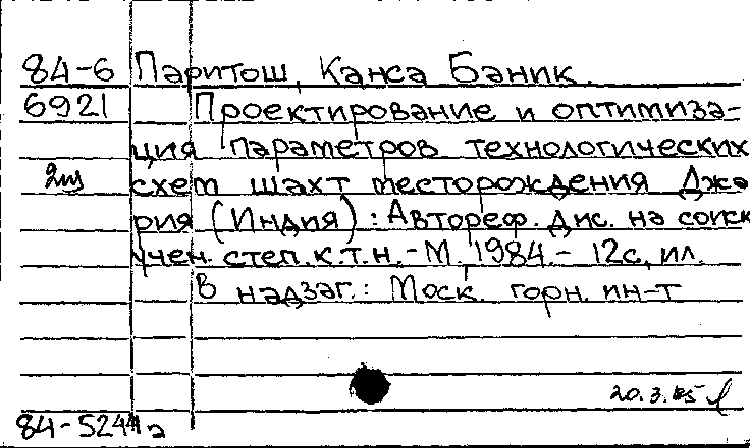 84-6 Паритош, Канса Баник.
6921 Проектирование и оптимиза-
ция параметров технологических
2 из схем шахт месторождения Джа-
рия (Индия): Автореф. дис. на соиск
учен. степ. к.т.н. - М, 1984. - 12с, ил.
В надзаг.: Моск. горн. ин-т
20.3.85
84-5244а